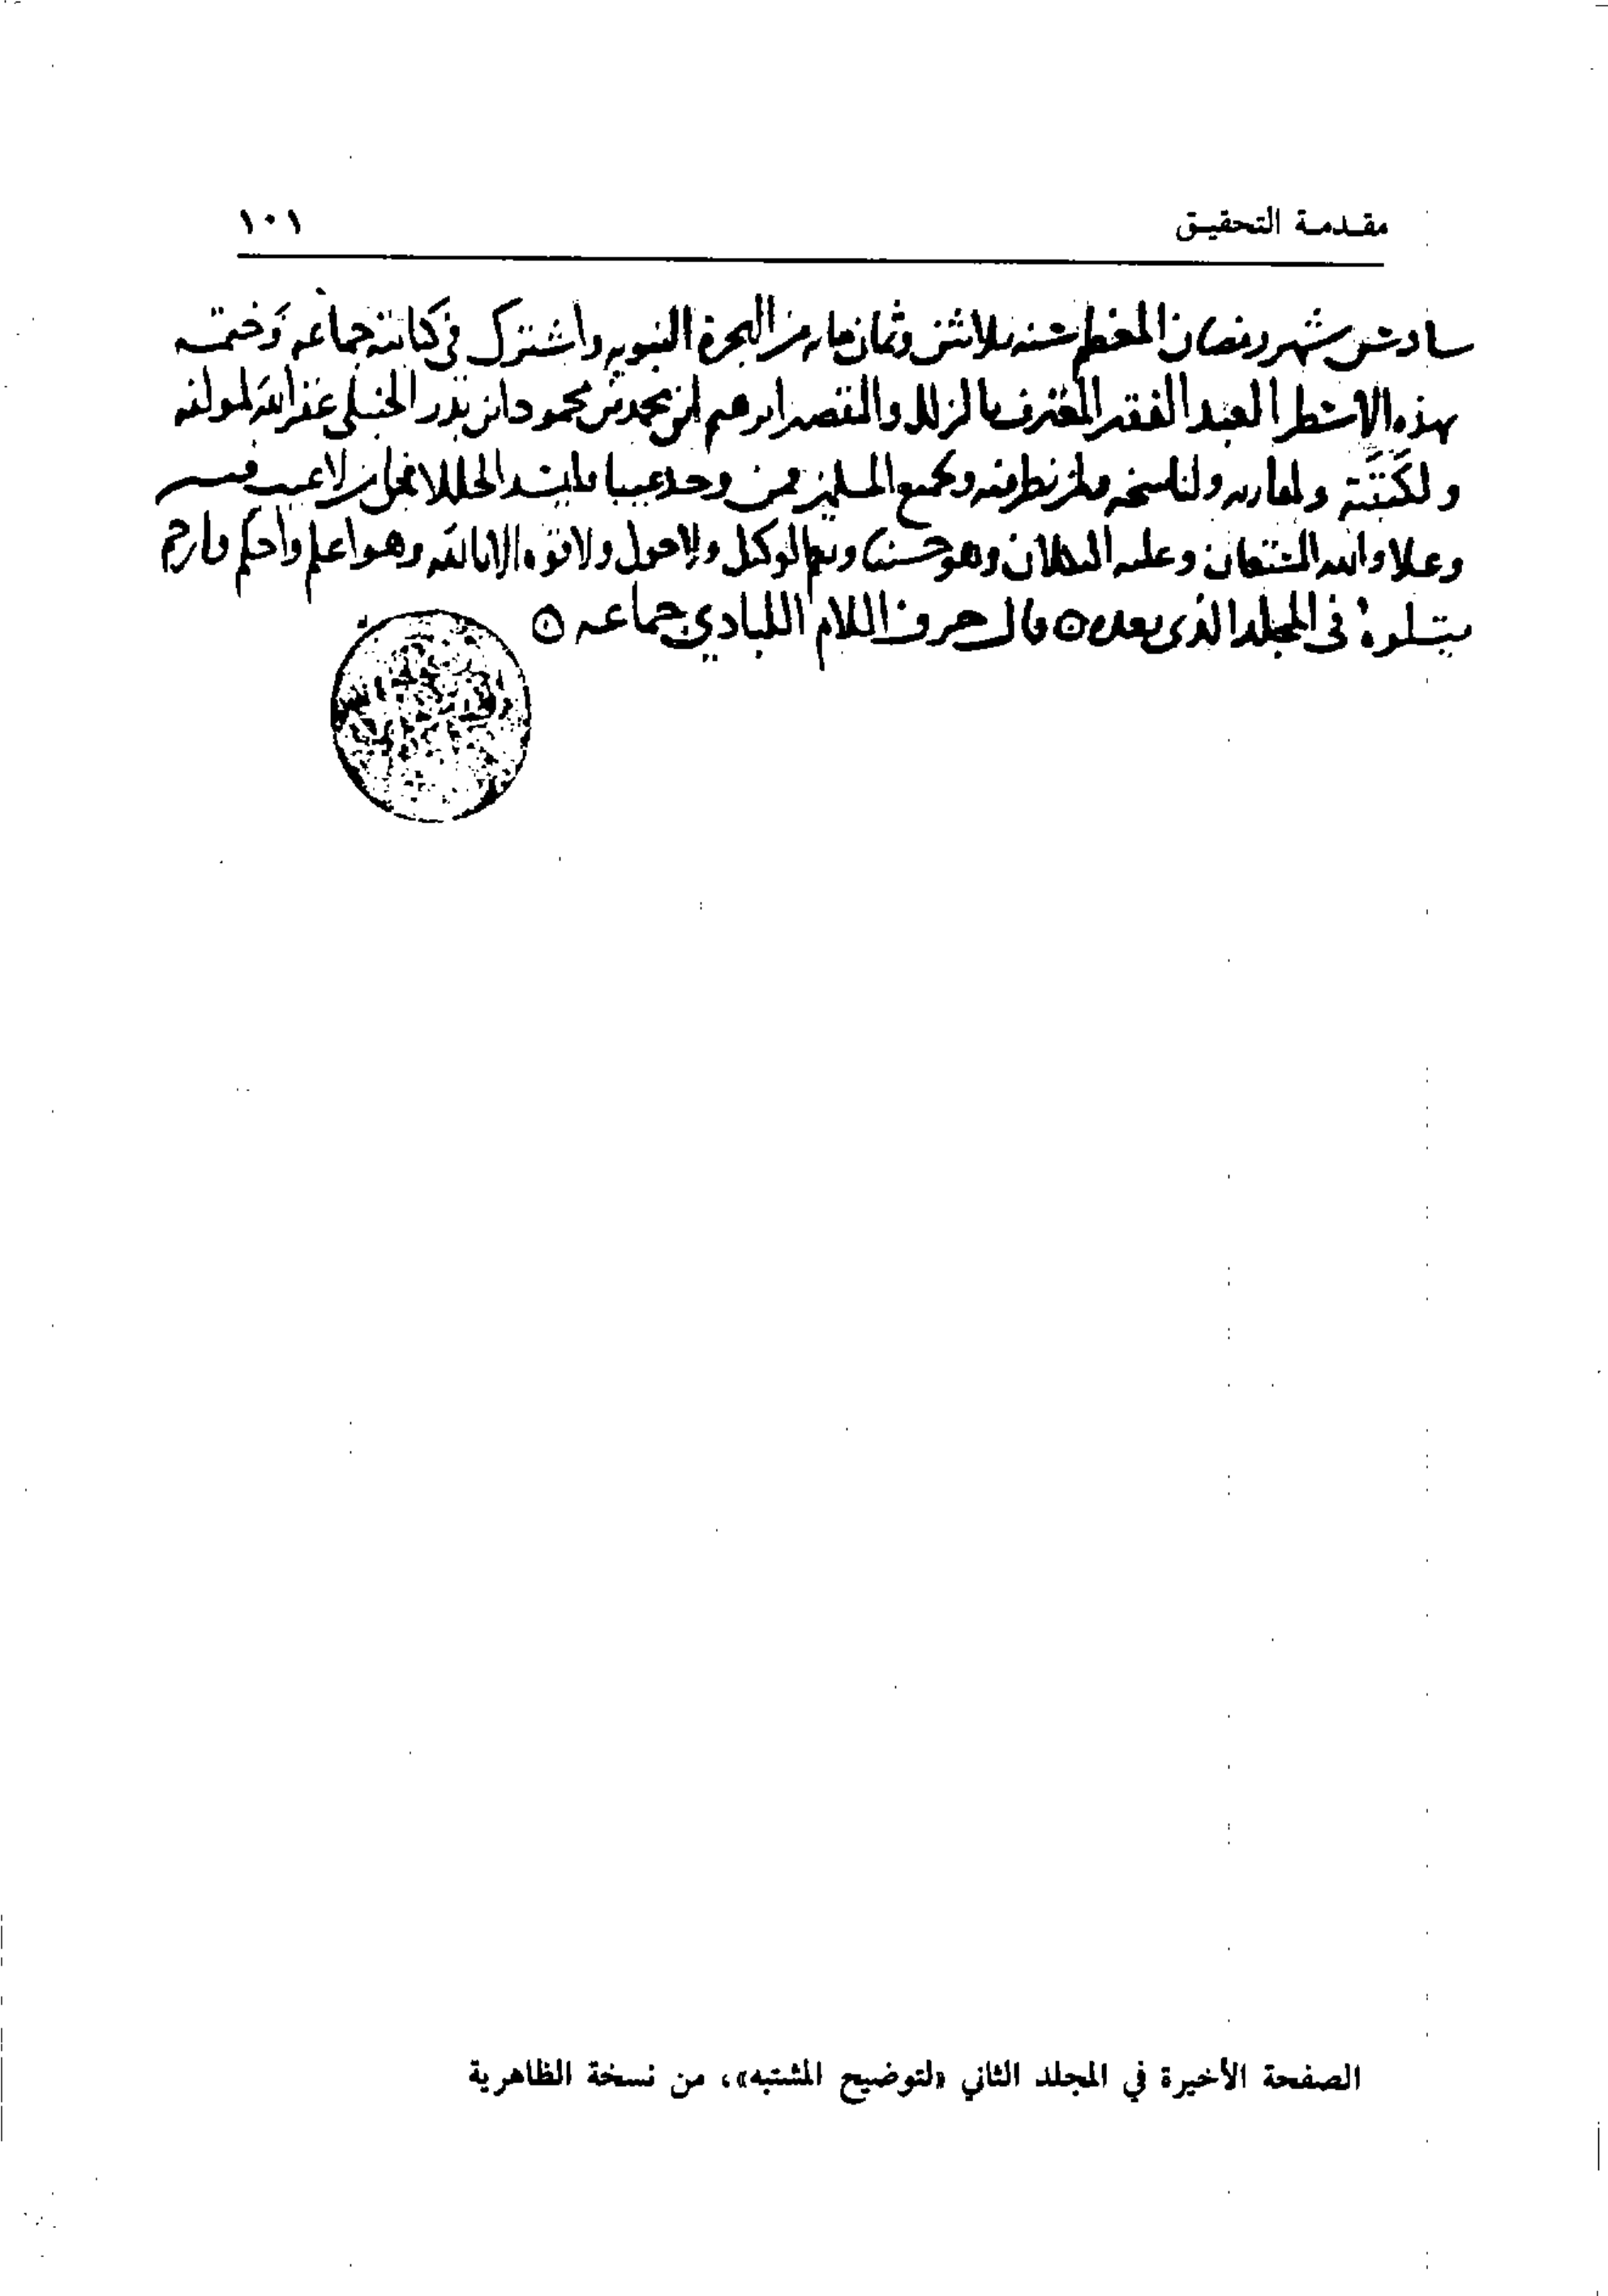 مقدمة التحقيق ١٠١
سادس شهر رمضان المعظم سنه ثلاثين وثمان مايه من الهجرة النبويه واشترك في كتابته جماعه وختمه
بهذه الاسطر العبد الفقير المعترف بالزلل والتقصير ابرهيم بن محمد بن محمود ابن بدر الحنبلي غفر الله لمولفه
ولكتبته ولقاريه ولناسخه ولمن نظر فيه ولجميع المسلمين ومن وجد عيبا فليسد الخللا فجل من لا عيب فيه
وعلا والله المستعان وعليه التكلان وهو حسبنا ونعم الوكيل ولا حول ولا قوه الا بالله وهو اعلم واحكم وارحم
يتلوه في المجلد الذي بعده ۞ قال حرف اللام اللبادي جماعه ۞
الصفحة الأخيرة في المجلد الثاني «لتوضيح المشتبه»، من نسخة الظاهرية